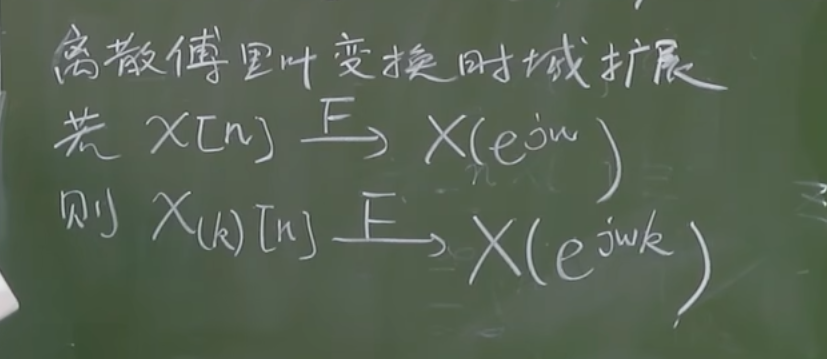 离散傅里叶变换时域扩展
若 x[n] —F→ X(e^{jw})
则 x_{(k)}[n] —F→ X(e^{jwk})